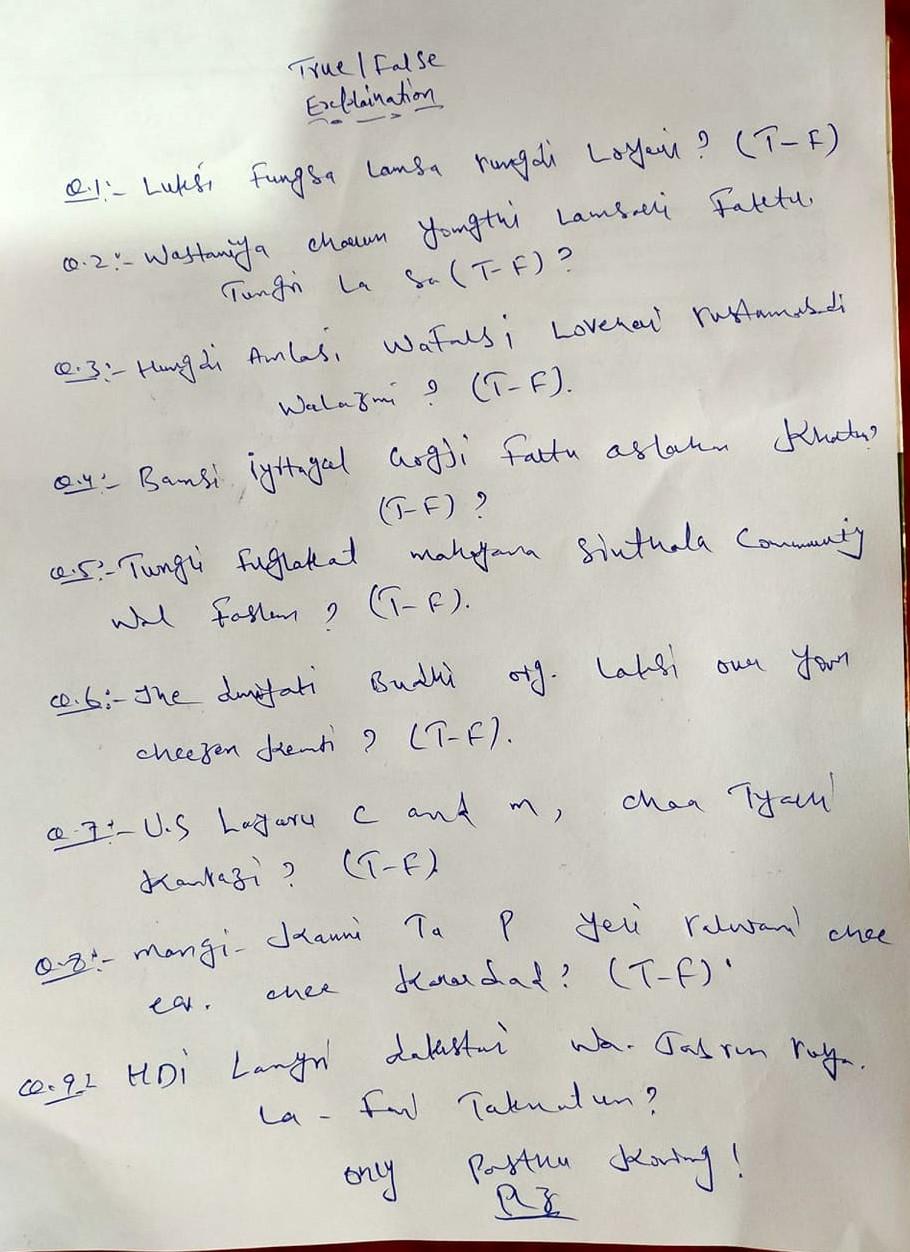 True/False
Explaination
Q.1:- Luksi Fungsa Lamsa rungdi Loyeui? (T-F)
Q.2:- Wastaniya chaeun Yomgthi Lamsaeli Faketu.
Tungri La Sa (T-F)?
Q.3:- Hungdi Amlasi Wafalsi Lovekari rustamabdi
Walazmi? (T-F).
Q.4:- Bamsi iyttagal Gogji Fattu aslahn Khatu?
(T-F)?
Q.5:- Tungli Fuglakat mahayana Sinthala Community
Wal Faslun? (T-F).
Q.6:- The dunifati Budhi org. Laksi our Your
cheezen kemti? (T-F).
Q.7:- U.S Lagaru C and m, chaa Tyauli
Kantazi? (T-F)
Q.8:- mangi-Kanni Ta P Yeli ralwani chee
ea. chee Karardad? (T-F)
Q.9:- HDI Langri dakstni wa. Tasrun ruya.
La - Fav Taknatun?
only Pasthu Koring!
Plz